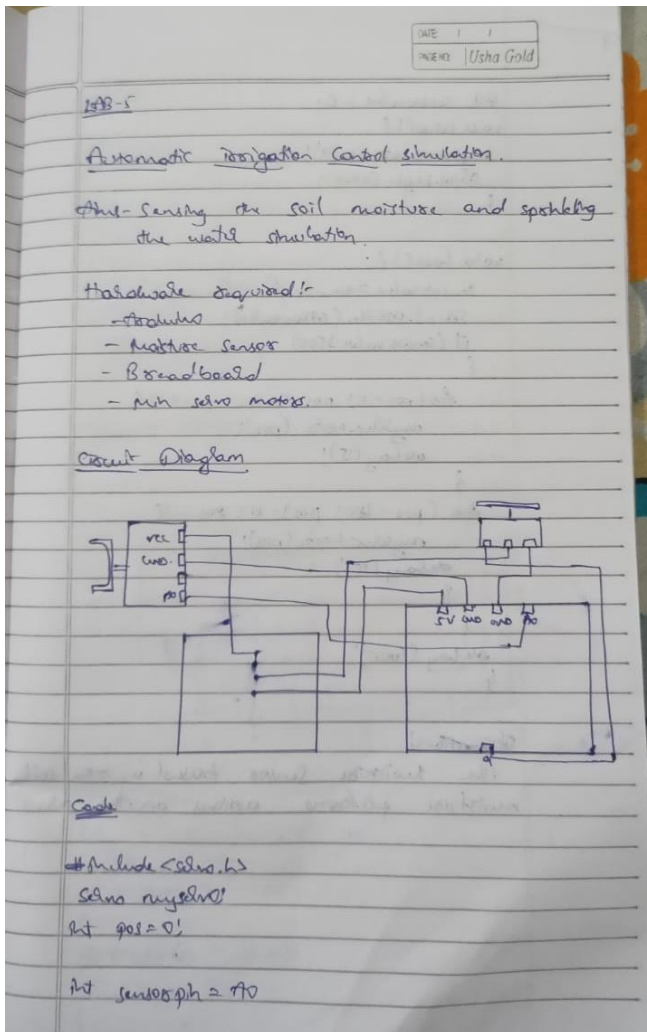 DATE / /
PAGE NO. Usha Gold
LAB-5
Automatic irrigation Control simulation.
Aim:- Sensing the soil moisture and sprinkling
the water simulation.
Hardware required:-
- Arduino
- Moisture Sensor
- Breadboard
- Min servo motors.
Circuit Diagram
VCC
GND.
A0
5V GND GND A0
9
Code
#include <servo.h>
Servo myservo;
int pos = 0;
int sensorpin = A0